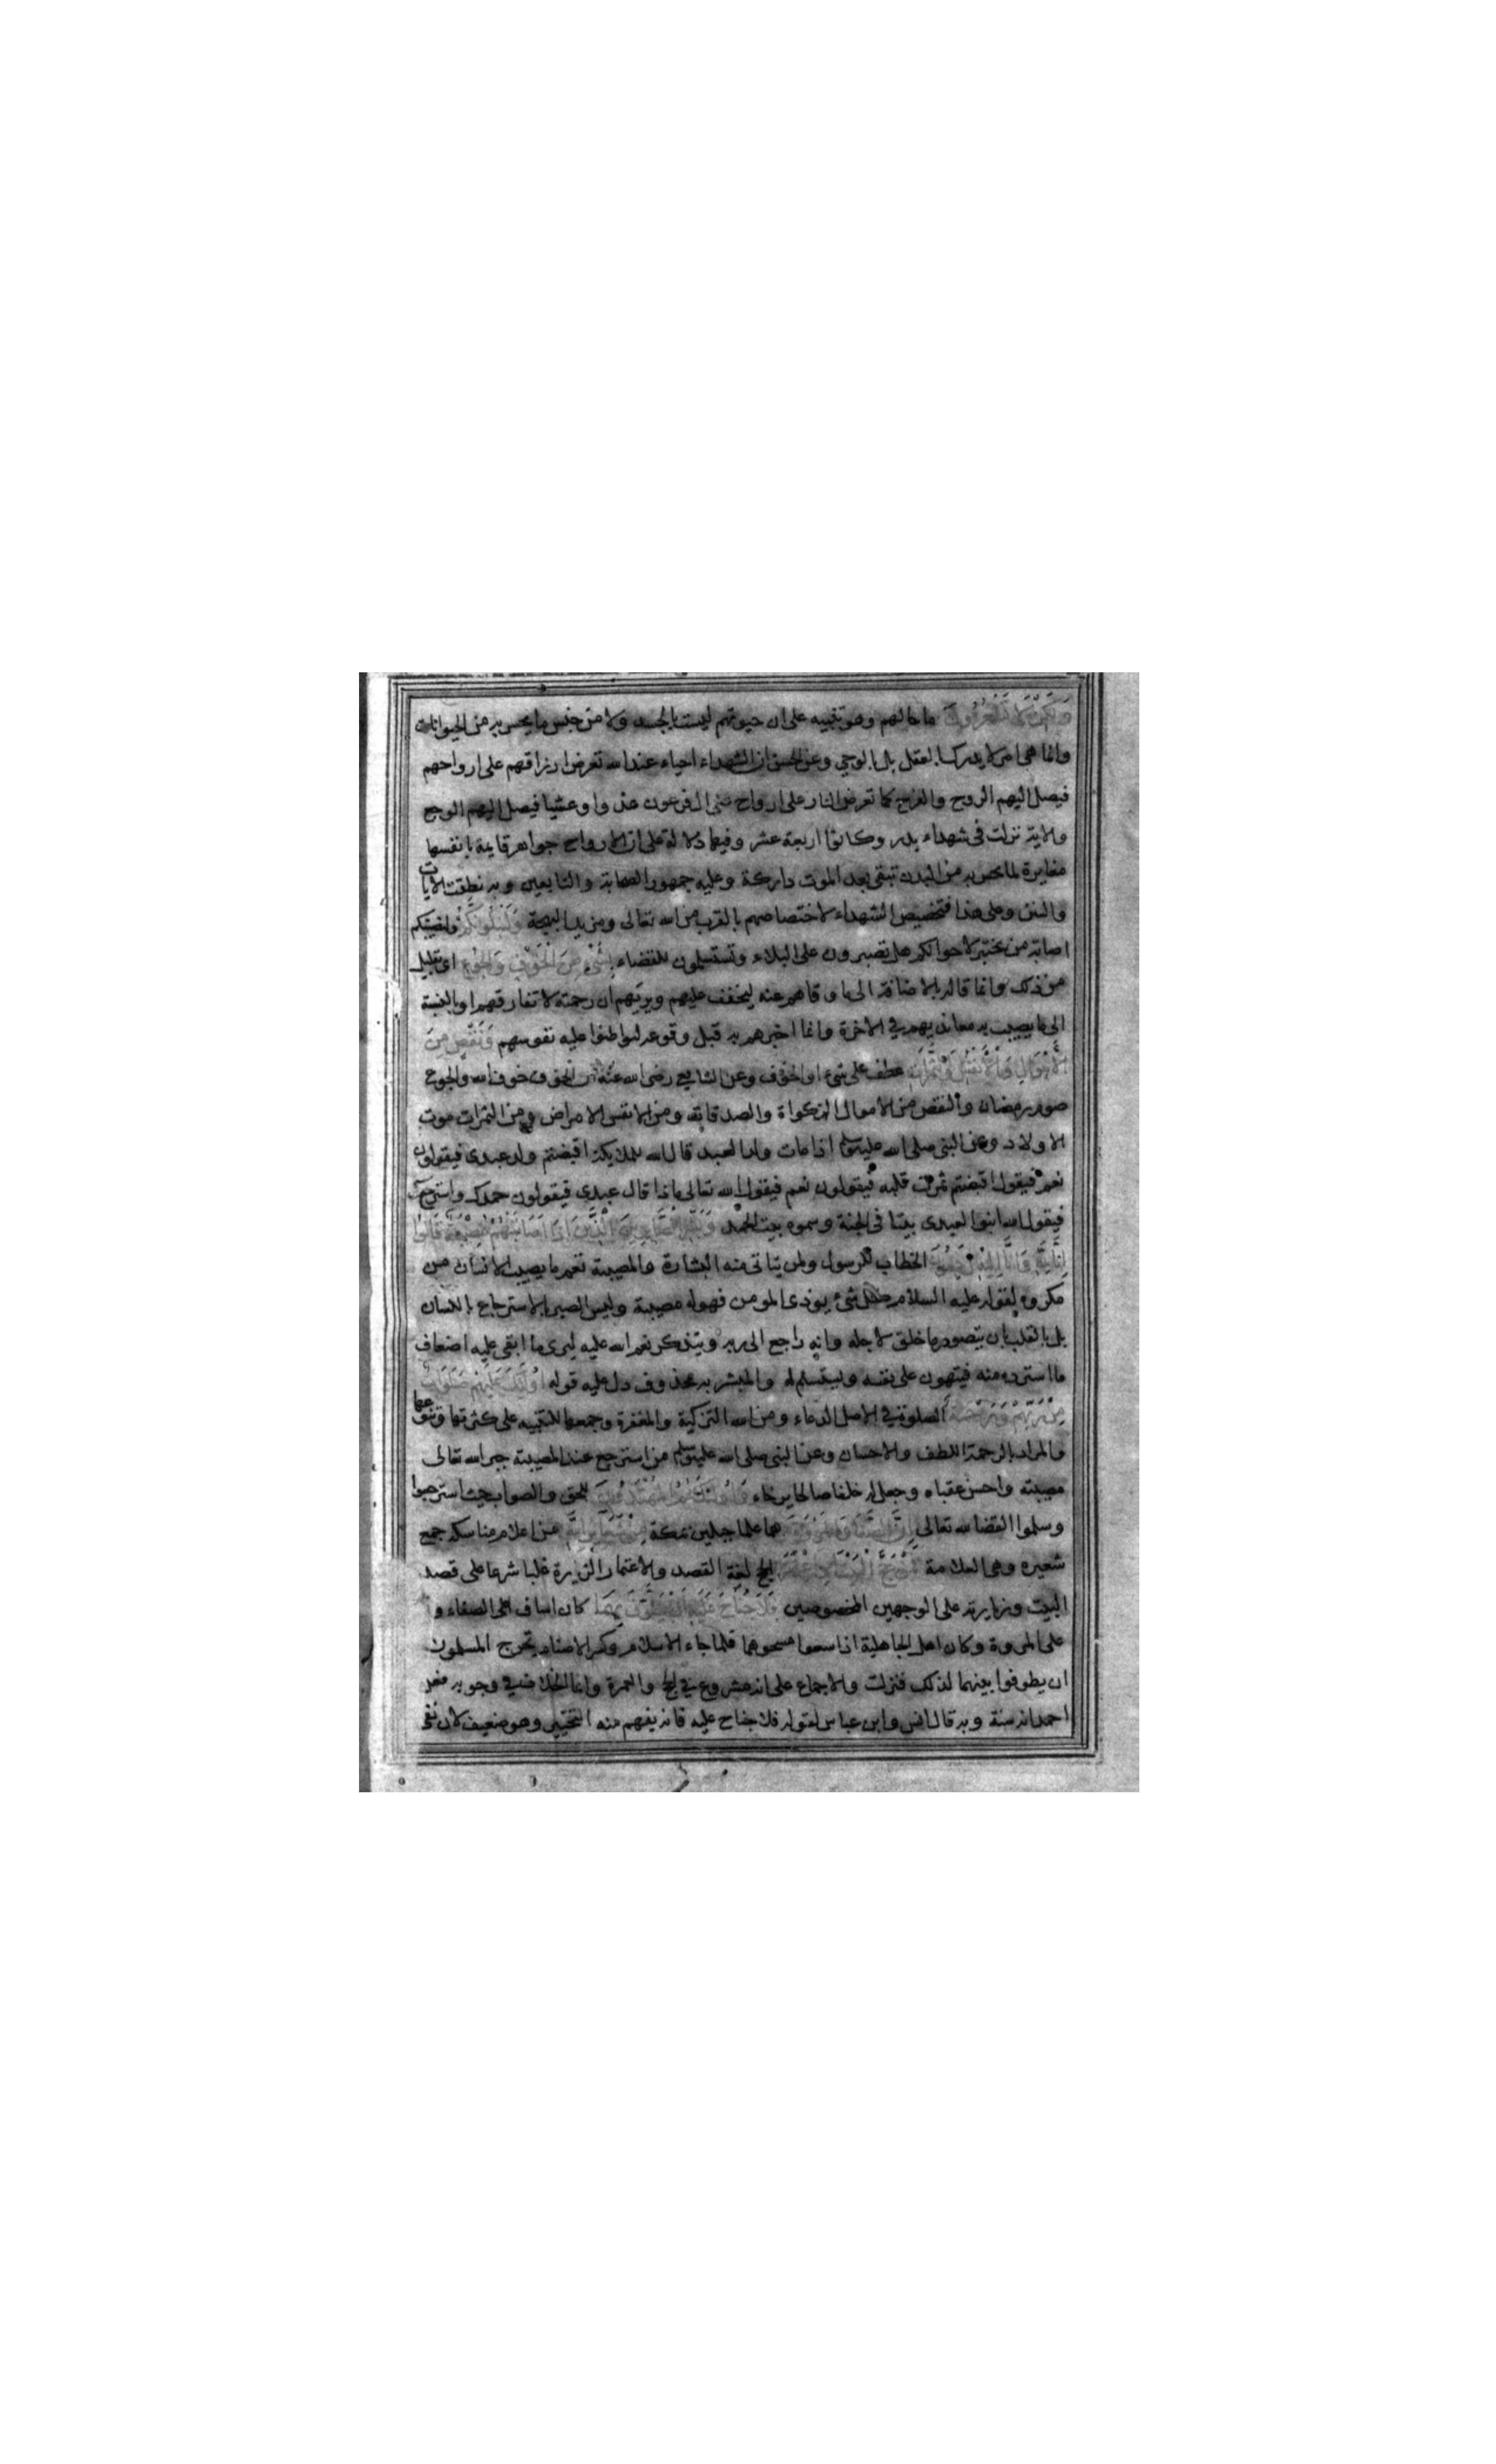 وَلَكِنْ لَا تَشْعُرُونَ ما حالهم وهو تنبيه على ان حيوتهم ليست بالجسد ولا من جنس ما يحس به من الحيوانات
وانما هى امر لا يدرك بالعقل بل بالوحي وعن الحسن ان الشهداء احياء عند الله تعرض ارزاقهم على ارواحهم
فيصل اليهم الروح والفرح كما تعرض النار على ارواح ال فرعون غدوا وعشيا فيصل اليهم الوجع
والاية نزلت فى شهداء بدر وكانوا اربعة عشر وفيها دلالة على ان الارواح جواهر قايمة بانفسها
مغايرة لما يحس به من البدن تبقى بعد الموت داركة وعليه جمهور الصحابة والتابعين وبه نطقت الايات
والسنن وعلى هذا فتخصيص الشهداء لاختصاصهم بالقرب من الله تعالى ومزيد البهجة وَلَنَبْلُوَنَّكُمْ ولنصيبنكم
اصابة من يختبر لاحوالكم هل تصبرون على البلاء وتستسلمون للقضاء بِشَيْءٍ مِنَ الْخَوْفِ وَالْجُوعِ اى بقليل
من ذلك وانما قلله بالاضافة الى ما وقاهم عنه ليخفف عليهم ويريهم ان رحمته لا تفارقهم او بالنسبة
الى ما يصيب به معانديهم في الاخرة وانما اخبرهم به قبل وقوعه ليوطنوا عليه نفوسهم وَنَقْصٍ مِنَ
الْأَمْوَالِ وَالْأَنْفُسِ وَالثَّمَرَاتِ عطف على شئ او الخوف وعن الشافعي رضى الله عنه الخوف خوف الله والجوع
صوم رمضان والنقص من الاموال الزكواة والصدقات ومن الانفس الامراض ومن الثمرات موت
الاولاد وعن النبى صلى الله عليه وسلم اذا مات ولد العبد قال الله للملايكة اقبضتم ولد عبدى فيقولون
نعم فيقول اقبضتم ثمرت قلبه فيقولون نعم فيقول الله تعالى ماذا قال عبدى فيقولون حمدك واسترجع
فيقول الله ابنوا لعبدى بيتا فى الجنة وسموه بيت الحمد وَبَشِّرِ الصَّابِرِينَ الَّذِينَ إِذَا أَصَابَتْهُمْ مُصِيبَةٌ قَالُوا
إِنَّا لِلَّهِ وَإِنَّا إِلَيْهِ رَاجِعُونَ الخطاب للرسول ولمن يتاتى منه البشارة والمصيبة تعم ما يصيب الانسان من
مكروه لقوله عليه السلام كل شئ يوذى المومن فهو له مصيبة وليس الصبر بالاسترجاع باللسان
بل بالقلب بان يتصور ما خلق لاجله وانه راجع الى ربه ويتذكر نعم الله عليه ليرى ما ابقى عليه اضعاف
ما استرده منه فيتهون على نفسه ويستسلم له والمبشر به محذوف دل عليه قوله أُولَئِكَ عَلَيْهِمْ صَلَوَاتٌ
مِنْ رَبِّهِمْ وَرَحْمَةٌ الصلوة في الاصل الدعاء ومن الله التزكية والمغفرة وجمعها للتنبيه على كثرتها وتنوعها
والمراد بالرحمة اللطف والاحسان وعن النبى صلى الله عليه وسلم من استرجع عند المصيبة جبر الله تعالى
مصيبته واحسن عقباه وجعل له خلفا صالحا يرضاه وَأُولَئِكَ هُمُ الْمُهْتَدُونَ للحق والصواب حيث استرجعوا
وسلموا لقضا الله تعالى إِنَّ الصَّفَا وَالْمَرْوَةَ هما علما جبلين بمكة مِنْ شَعَائِرِ اللَّهِ من اعلام مناسكه جمع
شعيرة وهى العلامة فَمَنْ حَجَّ الْبَيْتَ أَوِ اعْتَمَرَ الحج لغة القصد والاعتمار الزيارة غلبا شرعا على قصد
البيت وزيارته على الوجهين المخصوصين فَلَا جُنَاحَ عَلَيْهِ أَنْ يَطَّوَّفَ بِهِمَا كان اساف على الصفاء و
على المروة وكان اهل الجاهلية اذا سعوا مسحوهما فلما جاء الاسلام وكسر الاصنام تحرج المسلمون
ان يطوفوا بينهما لذلك فنزلت والاجماع على انه مشروع في الحج والعمرة وانما الخلاف في وجوبه فعن
احمد انه سنة وبه قال انس وابن عباس لقوله فلا جناح عليه فانه يفهم منه التخيير وهو ضعيف لان نفى